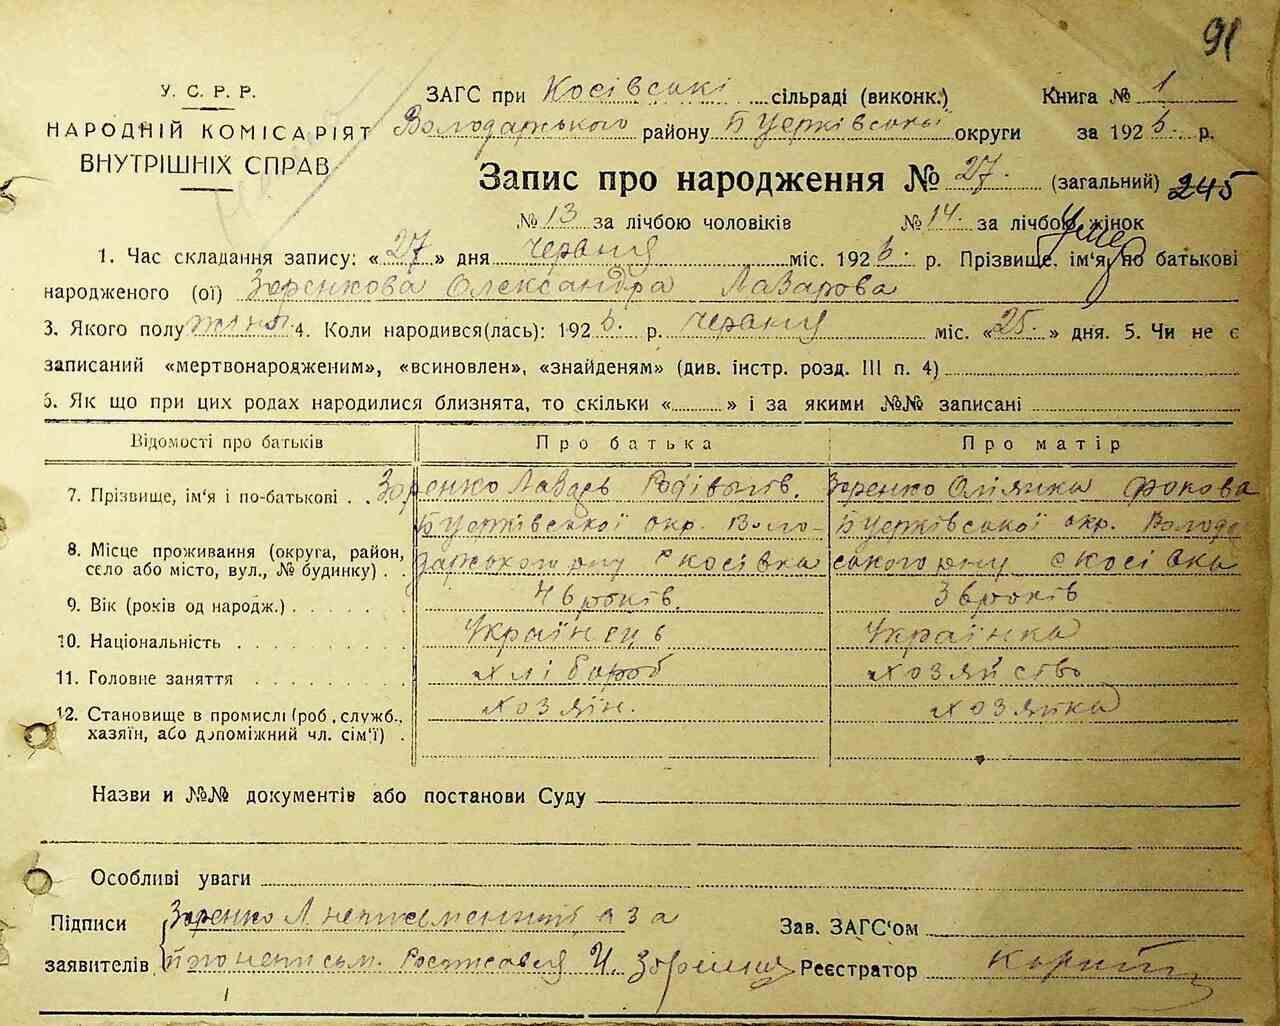 91
У. С. Р. Р.
НАРОДНІЙ КОМІСАРІЯТ
ВНУТРІШНІХ СПРАВ
ЗАГС при Косівські сільраді (виконк.) Книга № 1
Володарського району Б Церківської округи за 1926 р.
Запис про народження № 27. (загальний) 245
№ 13 за лічбою чоловіків № 14. за лічбою жінок
1. Час складання запису: « 27 » дня червня міс. 1926. р. Прізвище, ім'я, по батькові
народженого (ої) Зоренкова Олександра Лазарова
3. Якого полу жіноч. 4. Коли народився(лась): 1926. р. червня міс. « 25. » дня. 5. Чи не є
записаний «мертвонародженим», «всиновлен», «знайденям» (див. інстр. розд. III п. 4)
6. Як що при цих родах народилися близнята, то скільки « » і за якими №№ записані
Відомості про батьків Про батька Про матір
7. Прізвище, ім'я і по-батькові . . Зоренко Лазарь Зоренко Фокова
Б Церківської окр. Воло- Б Церківської окр. Володар
8. Місце проживання (округа, район,
село або місто, вул., № будинку) . . зарського с Косівка ського с Косівка
9. Вік (років од народж.) 46 років. 36 років
10. Національність Українець Українка
11. Головне заняття хлібороб хозяйство
12. Становище в промислі (роб., служб., хозяїн. хозяйка
хазяїн, або допоміжний чл. сім'ї) .
Назви и №№ документів або постанови Суду
Особливі уваги
Підписи Зоренко Л неписьменний а за
Зав. ЗАГС'ом
заявителів неписьм. Росписався И. Реєстратор